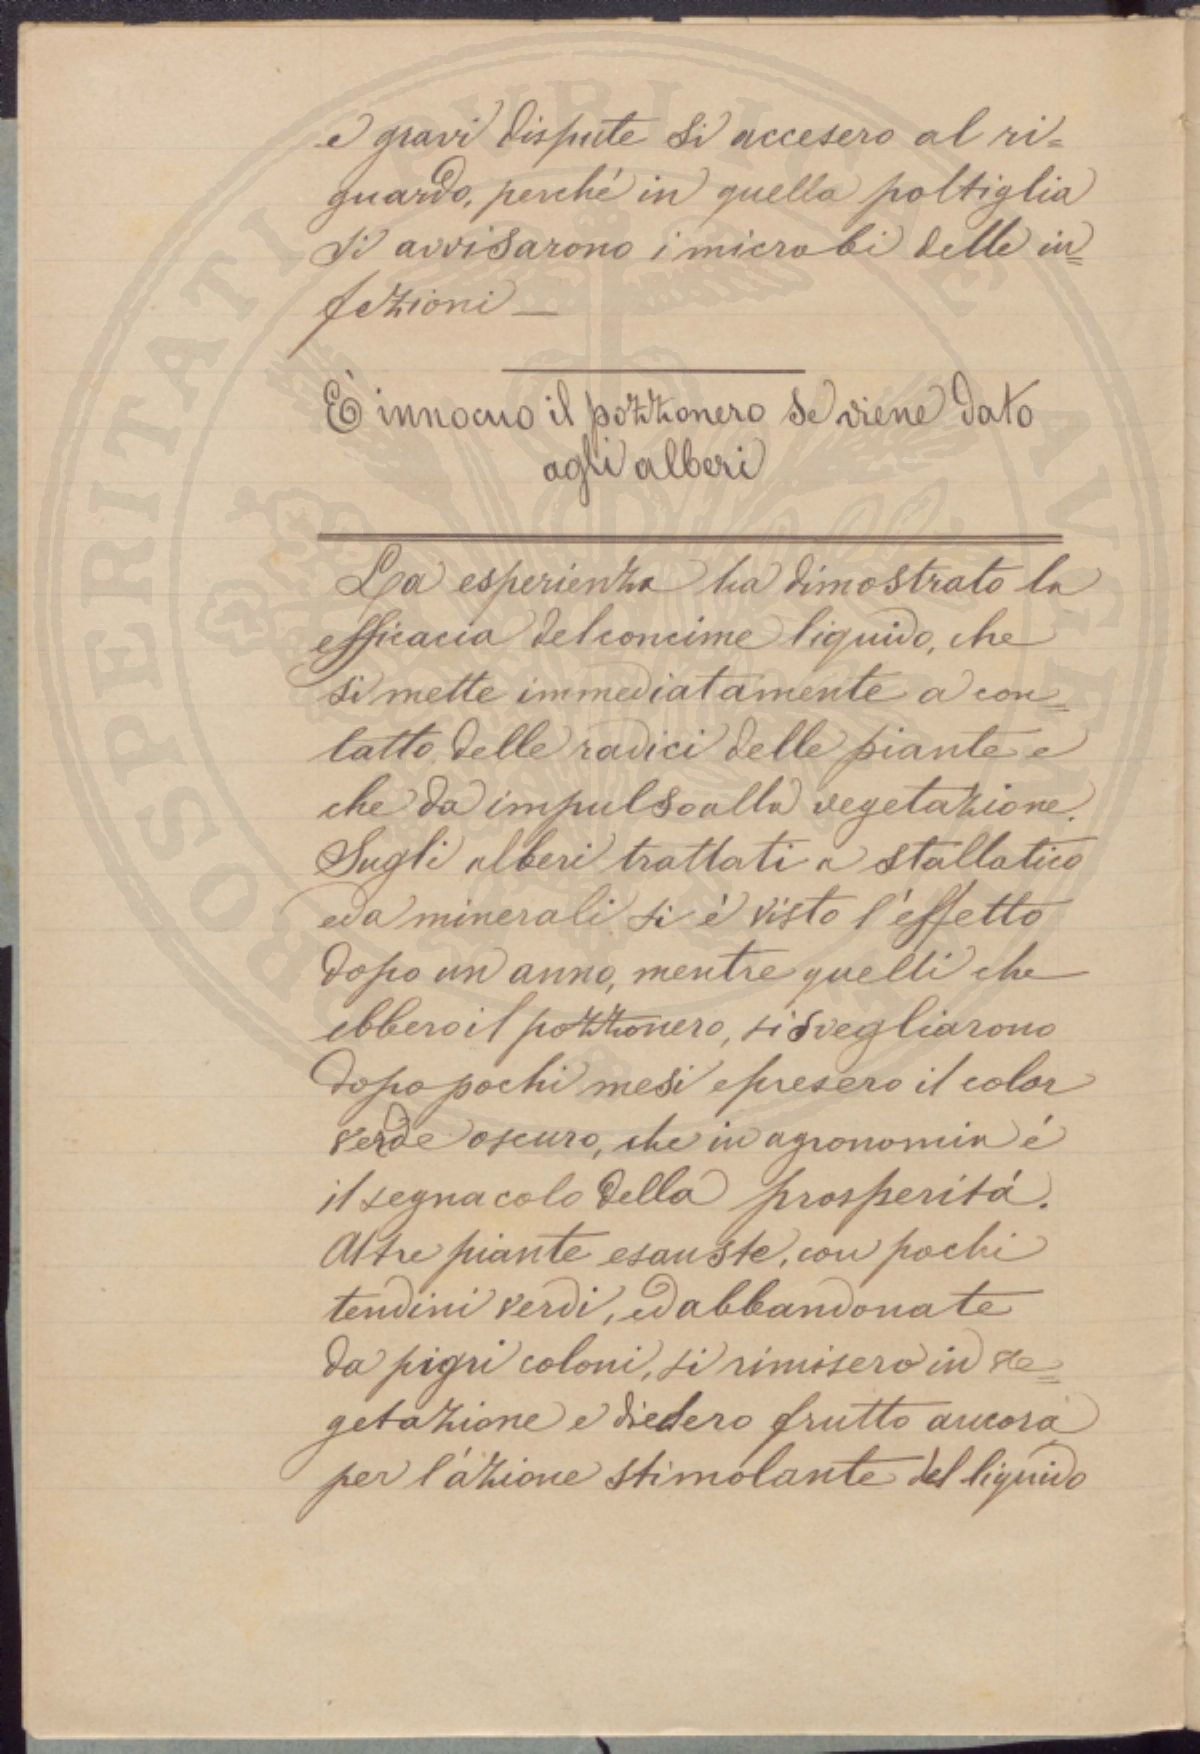 e gravi dispute si accesero al ri=
guardo, perché in quella poltiglia
si avvisarono i microbi delle in=
fezioni —
È innocuo il pozzonero se viene dato
agli alberi
La esperienza ha dimostrato la
efficacia del concime liquido, che
si mette immediatamente a con=
tatto delle radici delle piante e
che da impulso alla vegetazione.
Sugli alberi trattati a stallatico
ed a minerali si è visto l'effetto
dopo un anno, mentre quelli che
ebbero il pozzonero, si svegliarono
dopo pochi mesi e presero il color
verde oscuro, che in agronomia é
il segnacolo della prosperitá.
Altre piante esauste, con pochi
tendini verdi, ed abbandonate
da pigri coloni, si rimisero in ve=
getazione e diedero frutto ancora
per l'azione stimolante del liquido
PROSPERITATI PVBLICAE AVGENDAE